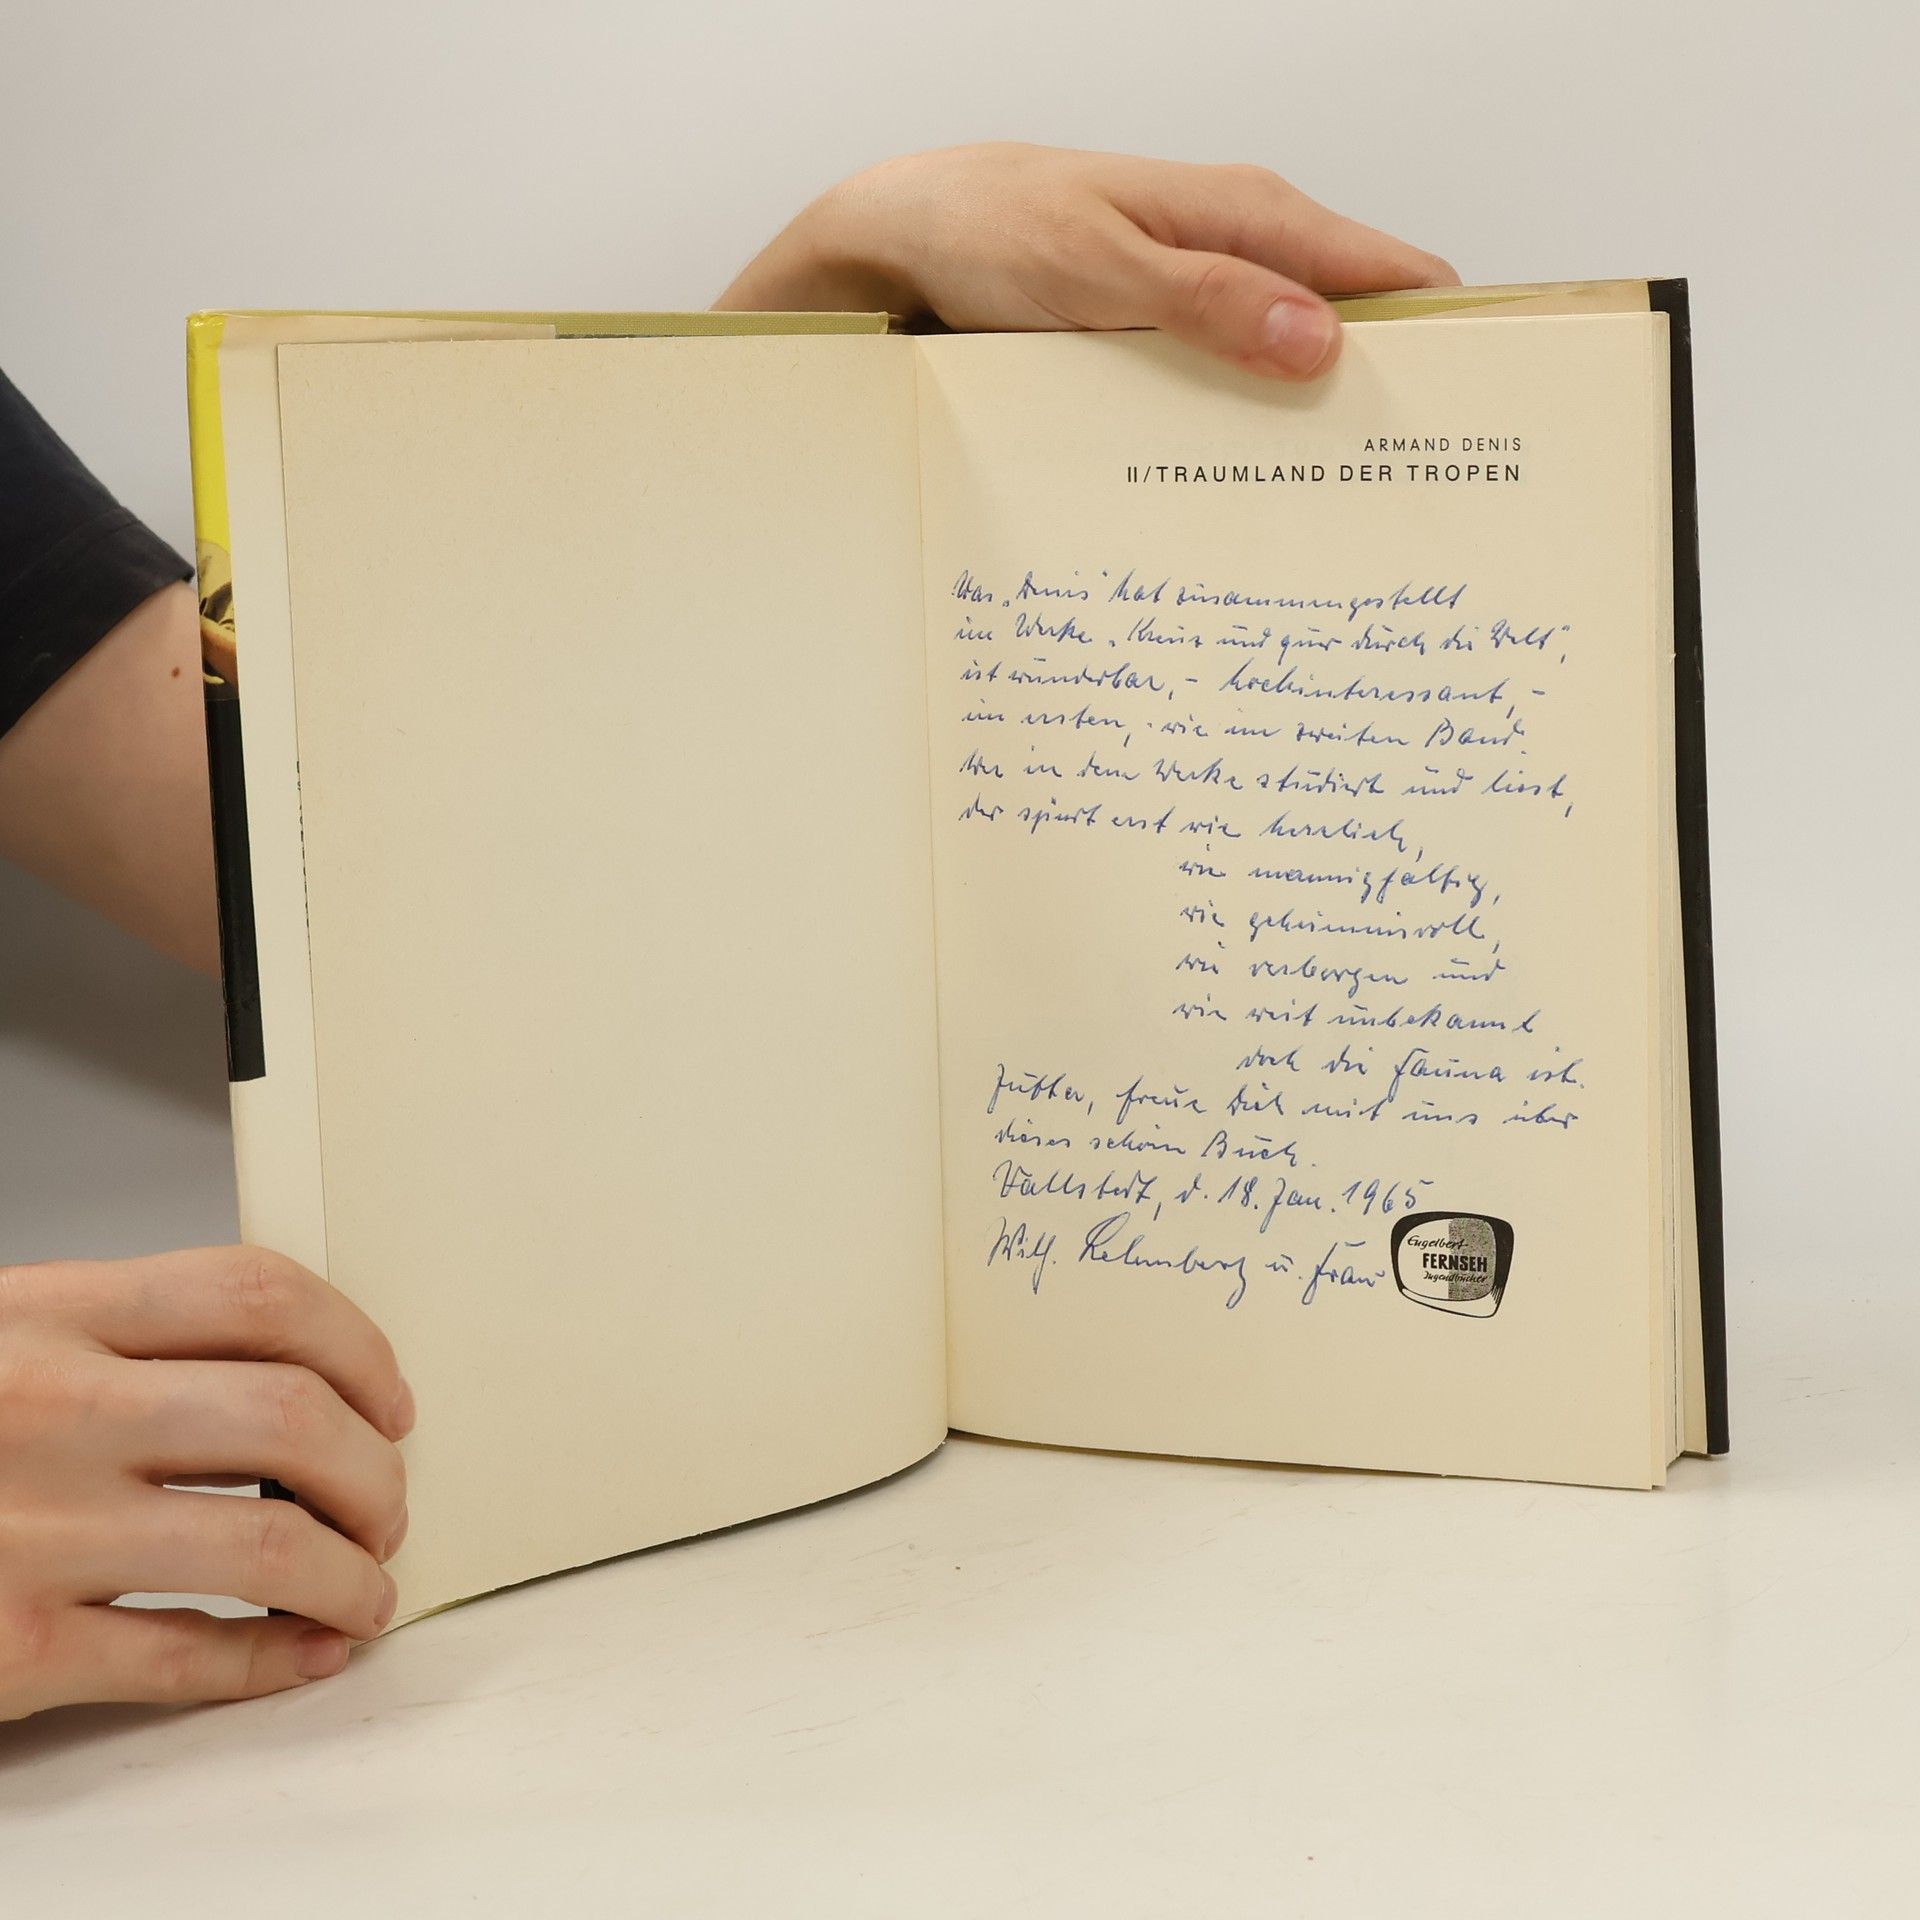 ARMAND DENIS
II/TRAUMLAND DER TROPEN
Was „Denis“ hat zusammengestellt
im Werke „Kreuz und quer durch die Welt“,
ist wunderbar, - hochinteressant, -
im ersten, - wie im zweiten Band.
Wer in dem Werke studiert und liest,
der spürt erst wie herrlich,
wie mannigfaltig,
wie geheimnisvoll,
wie verborgen und
wie weit unbekannt
doch die Fauna ist.
freue Dich mit uns über
dieses schöne Buch.
Vallstedt, d. 18. Jan. 1965
Wilh. u. Frau
Engelbert
FERNSEH
Jugendbücher